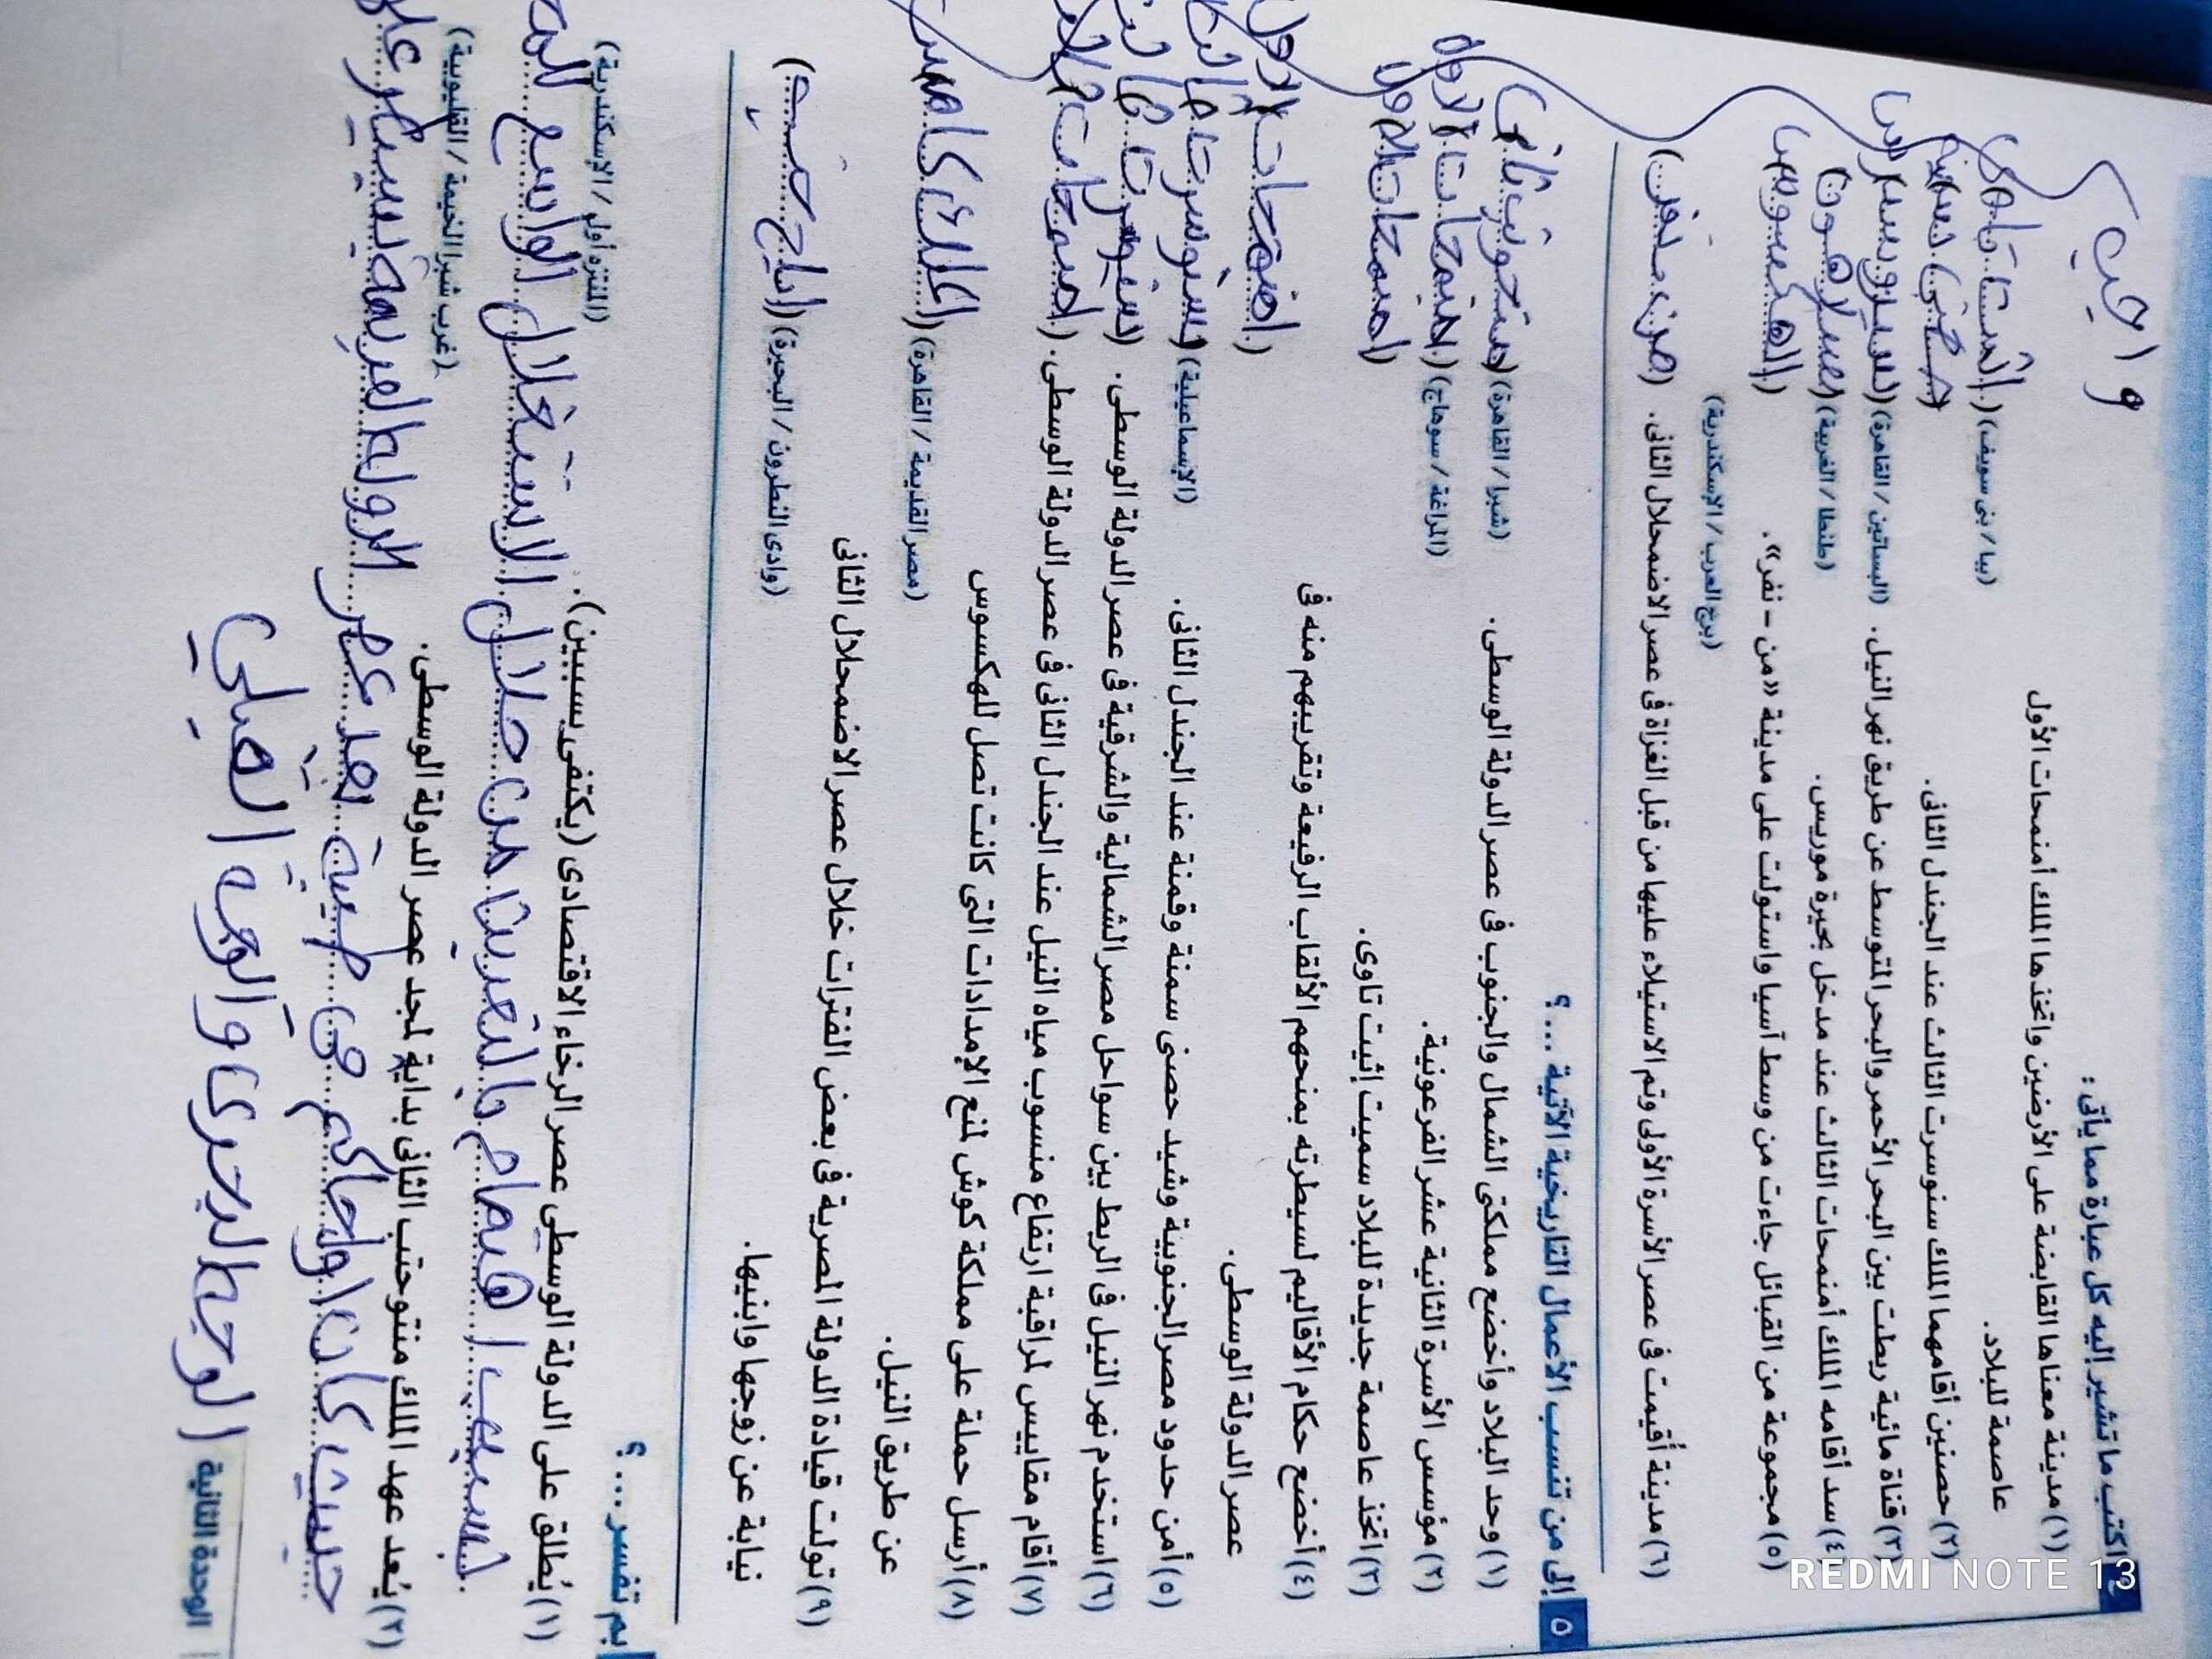 واجب
٤ اكتب ما تشير إليه كل عبارة مما يأتى :
(١) مدينة معناها القابضة على الأرضين واتخذها الملك أمنمحات الأول
عاصمة للبلاد. (ببا / بنى سويف) (اثيت تاوى)
(٢) حصنين أقامهما الملك سنوسرت الثالث عند الجندل الثانى. (حصنى سمنة
(٣) قناة مائية ربطت بين البحر الأحمر والبحر المتوسط عن طريق نهر النيل. (البساتين / القاهرة) (سيزوستريس)
(٤) سد أقامه الملك أمنمحات الثالث عند مدخل بحيرة موريس. (طنطا / الغربية) (سد اللاهون)
(٥) مجموعة من القبائل جاءت من وسط آسيا واستولت على مدينة «من - نفر». (الهكسوس)
(برج العرب / الإسكندرية)
(٦) مدينة أقيمت فى عصر الأسرة الأولى وتم الاستيلاء عليها من قبل الغزاة فى عصر الاضمحلال الثانى. (من نفر)
٥ إلى من تنسب الأعمال التاريخية الآتية ... ؟
(١) وحد البلاد وأخضع مملكتى الشمال والجنوب فى عصر الدولة الوسطى. (شبرا / القاهرة) (منتحوتب ثانى)
(٢) مؤسس الأسرة الثانية عشر الفرعونية. (المراغة / سوهاج) (امنمحات الاول)
(٣) اتخذ عاصمة جديدة للبلاد سميت إثيت تاوى. (امنمحات الاول)
(٤) أخضع حكام الأقاليم لسيطرته بمنحهم الألقاب الرفيعة وتقريبهم منه فى
عصر الدولة الوسطى. (امنمحات الاول)
(٥) أمن حدود مصر الجنوبية وشيد حصنى سمنة وقمنة عند الجندل الثانى. (الإسماعيلية) (سنوسرت ثالث)
(٦) استخدم نهر النيل فى الربط بين سواحل مصر الشمالية والشرقية فى عصر الدولة الوسطى. (سنوسرت ثالث)
(٧) أقام مقاييس لمراقبة ارتفاع منسوب مياه النيل عند الجندل الثانى فى عصر الدولة الوسطى. (امنمحات
(٨) أرسل حملة على مملكة كوش لمنع الإمدادات التى كانت تصل للهكسوس
عن طريق النيل. (مصر القديمة / القاهرة) (الملك كامس)
(٩) تولت قيادة الدولة المصرية فى بعض الفترات خلال عصر الاضمحلال الثانى
نيابة عن زوجها وابنيها. (وادى النطرون / البحيرة) (اياح حتب)
بم تفسر ... ؟
(١) يُطلق على الدولة الوسطى عصر الرخاء الاقتصادى (يكتفى بسببين). (المنتزه أول / الإسكندرية)
بسبب اهتمام بالتعدين من خلال الاستغلال الواسع
(٢) يُعد عهد الملك منتوحتب الثانى بداية لمجد عصر الدولة الوسطى. (غرب شبرا الخيمة / القليوبية)
حيث كان اول حاكم فى طيبة بعد عصر الدولة القديمة يسيطر على
الوجه البحرى والوجه القبلي
الوحدة الثانية
REDMI NOTE 13